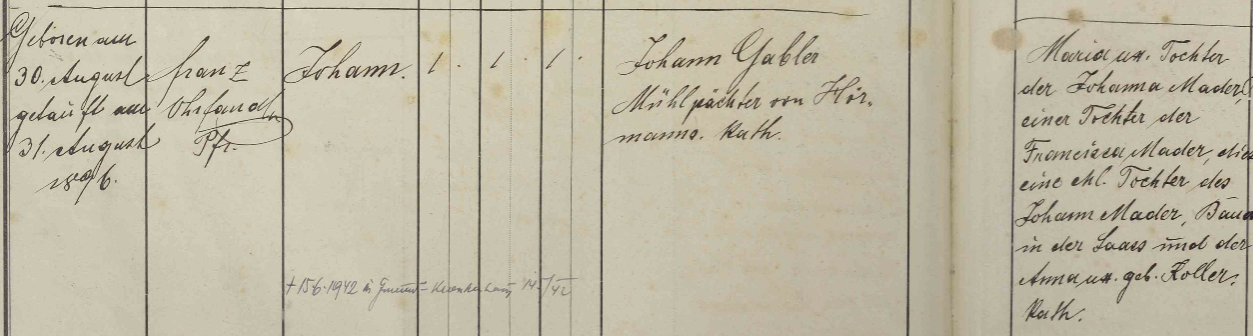 Geboren am
30. August
getauft am
31. August
1896.
Franz
Pfr.
Johann. 1. 1. 1.
Johann Gabler
Mühlpächter von Hör-
manns. Kath.
Maria ux. Tochter
der Johanna Mader,
einer Tochter der
Francisca Mader, dies
eine ehl. Tochter des
Johann Mader, Baue
in der Laass und der
Anna ux. geb. Koller.
Kath.
+ 15.6.1942 in Gmünd - Krankenhaus